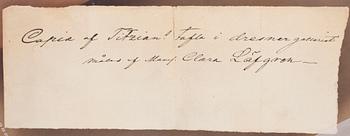 Copia af Titzians Tafla i dresnergalleriet
målad af Mamsl. Clara Löfgren